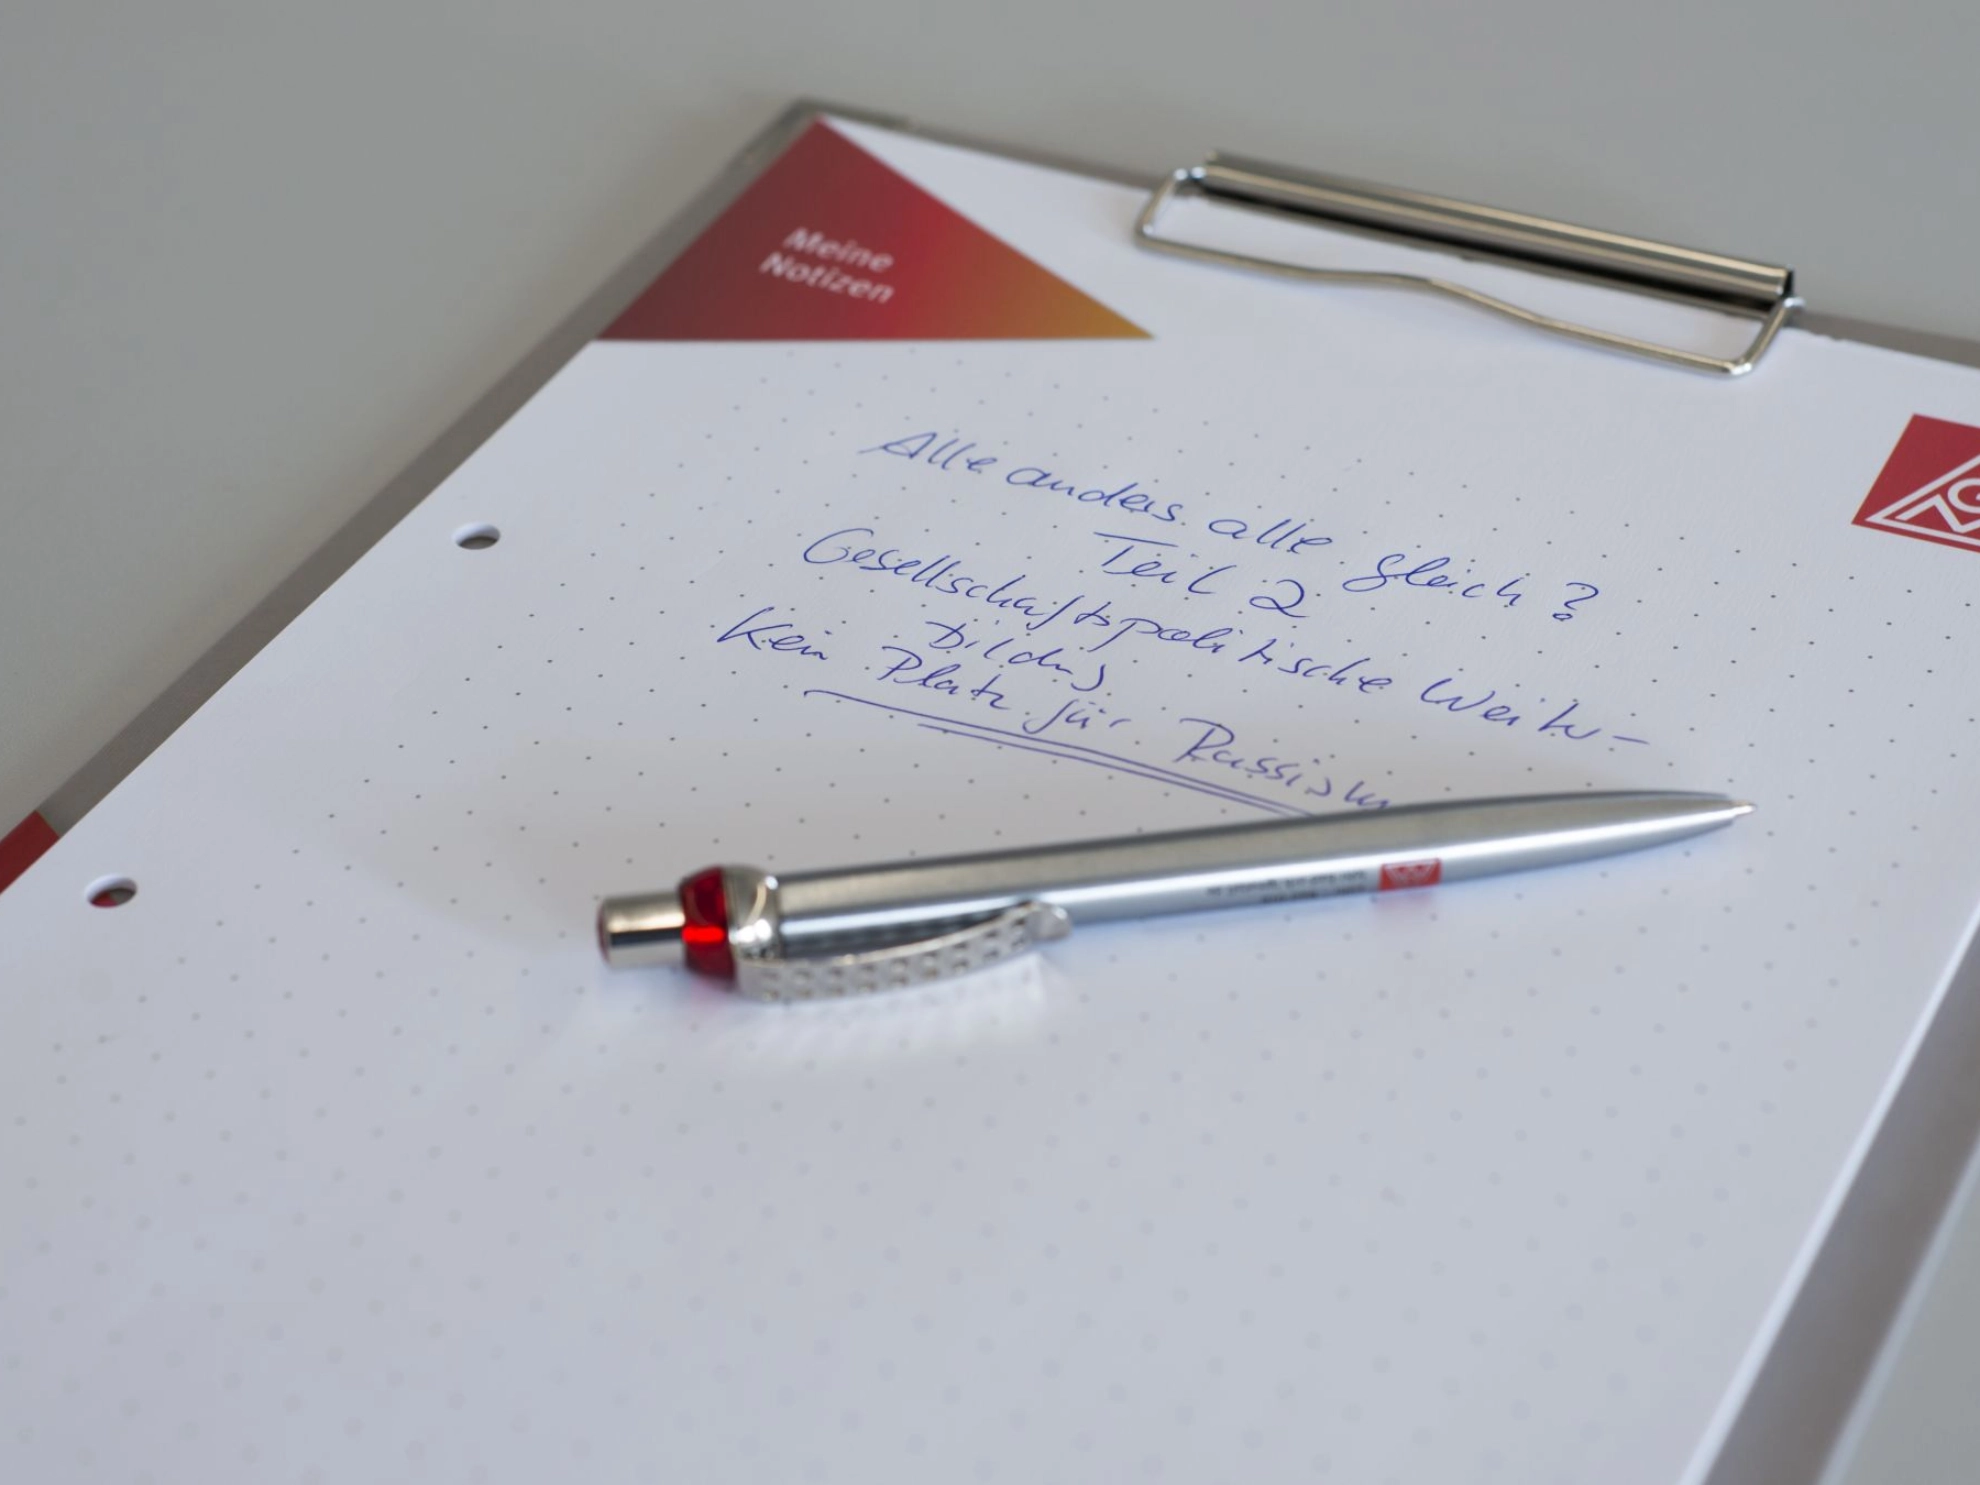 Meine
Notizen
Alle anders alle gleich?
Teil 2
Gesellschaftspolitische Weiter-
bildung
Kein Platz für Rassism